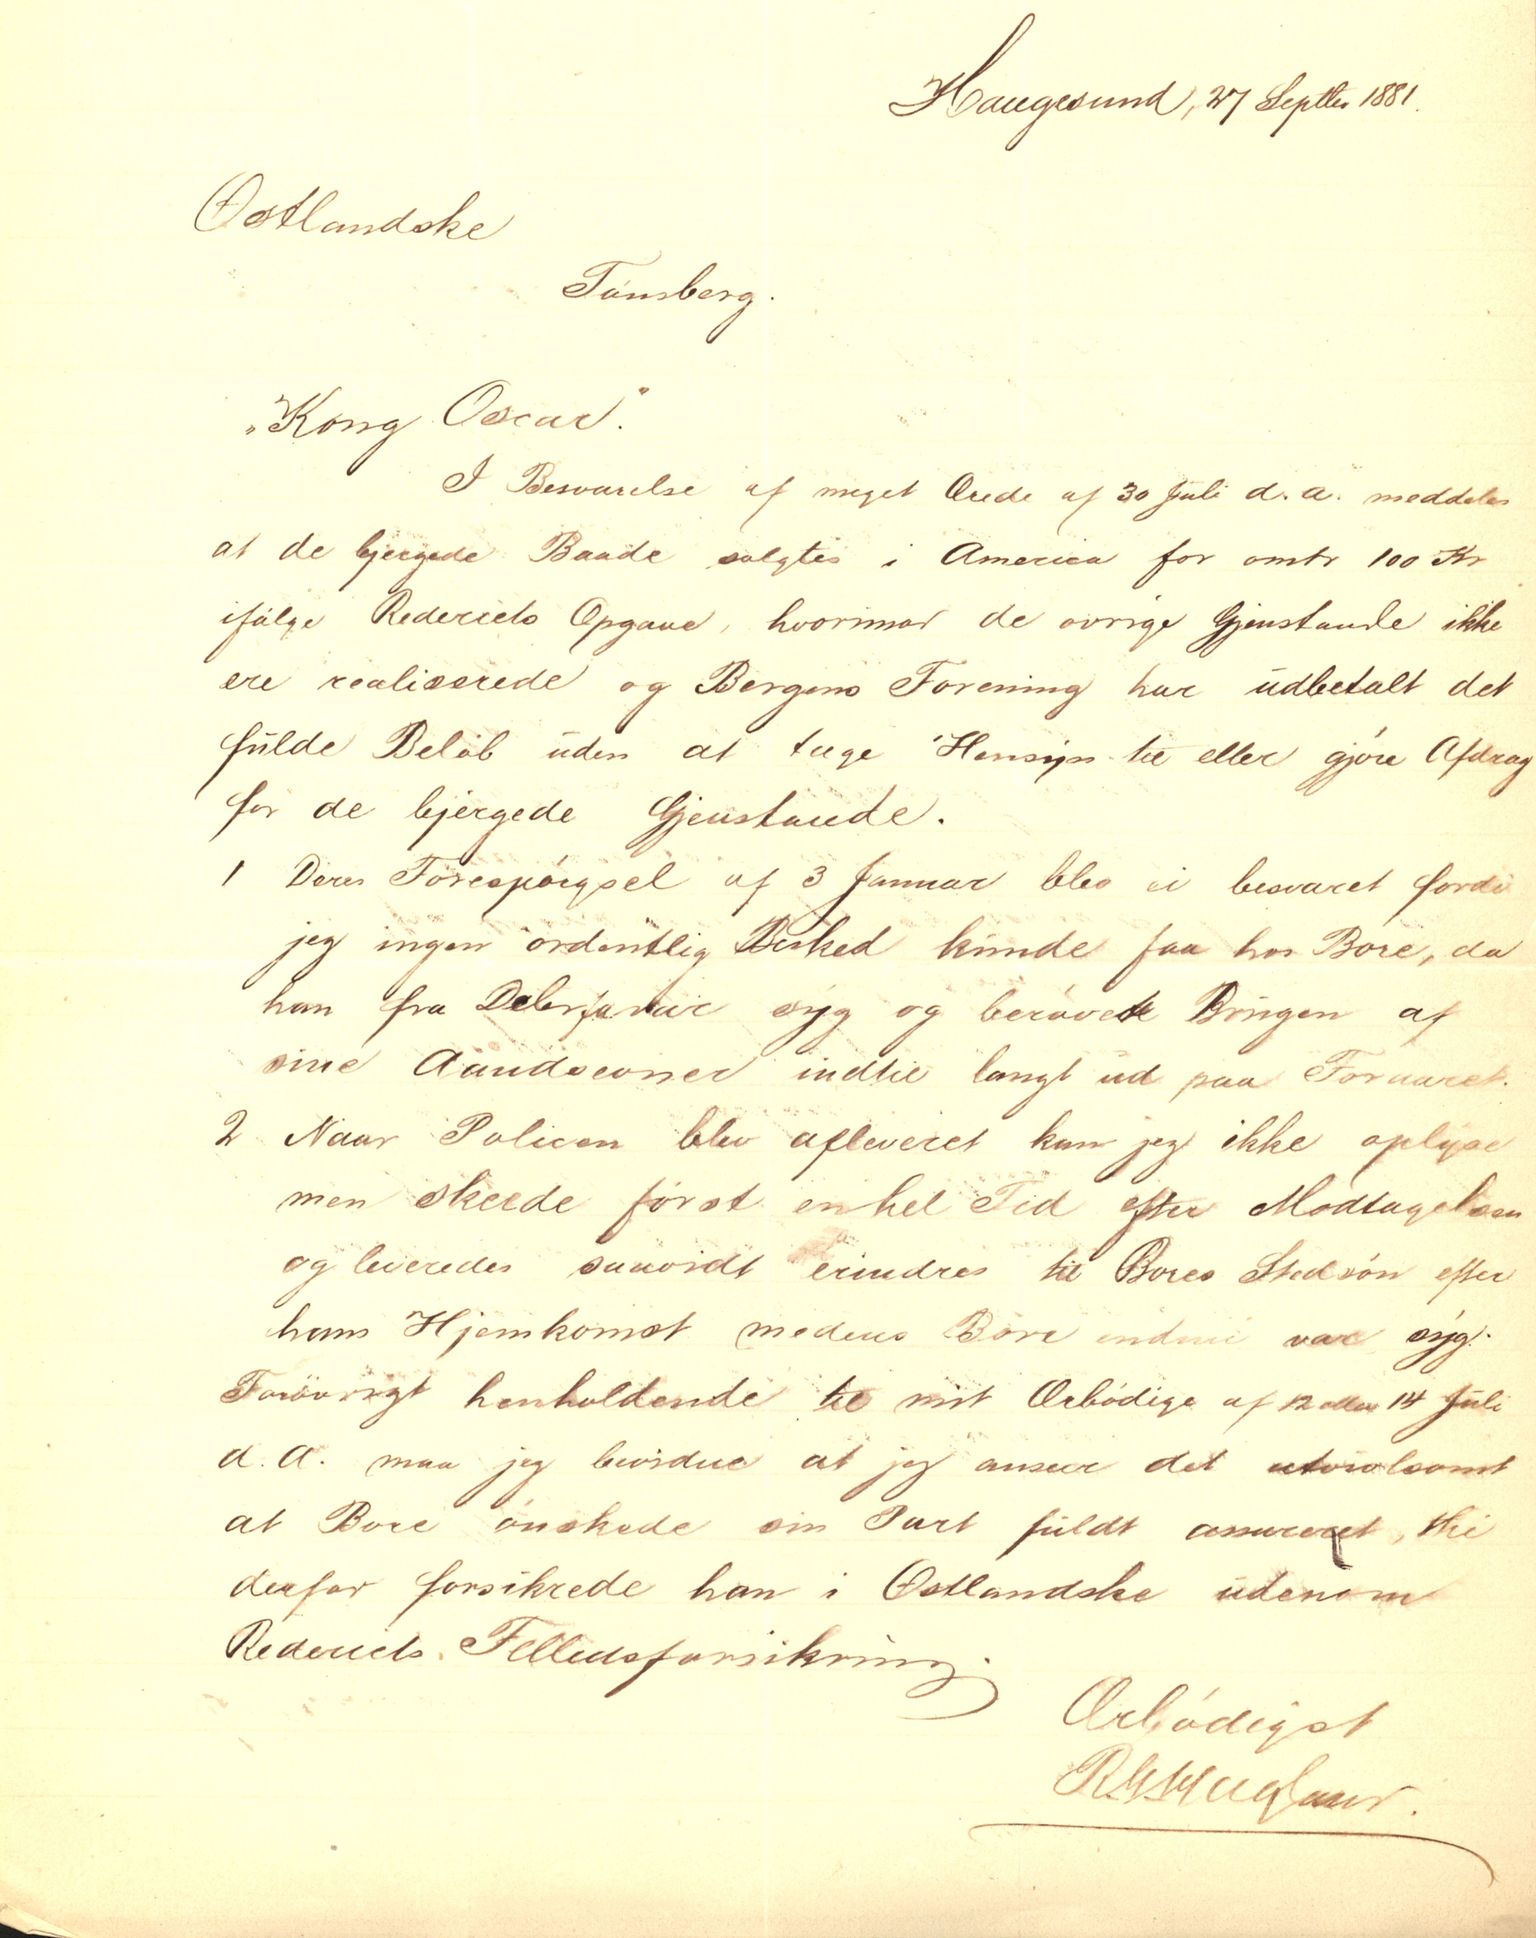 Haugesund, 27 Septbr 1881.
Østlandske
Tønsberg.
„Kong Oscar".
I Besvarelse af meget Ærede af 30 Juli d.a. meddeles
at de bjergede Baade solgtes i America for omtr 100 Kr
ifølge Rederiets Opgave, hvorimod de øvrige Gjenstande ikke
ere realiserede og Bergens Forening har udbetalt det
fulde Beløb uden at tage Hensyn til eller gjøre Afdrag
for de bjergede Gjenstande.
1 Deres Forespørgsel af 3 Januar blev ei besvaret fordi
jeg ingen ordentlig Besked kunde faa hos Bore, da
han fra Debr var syg og berøvet Brugen af
sine Aandsevner indtil langt ud paa Foraaret.
2 Naar Policen blev afleveret kan jeg ikke oplyse
men skeede først en hel Tid efter Modtagelsen
og leveredes saavidt erindres til Bores Stedsøn efter
hans Hjemkomst medens Bore endnu var syg.
Forøvrigt henholdende til mit Ærbødige af 12 eller 14 Juli
d.A. maa jeg bevidne at jeg anseer det utvivlsomt
at Bore ønskede sin Part fuldt assureret, thi
derfor forsikrede han i Østlandske udenom
Rederiets Fellesforsikring.
Ærbødigst